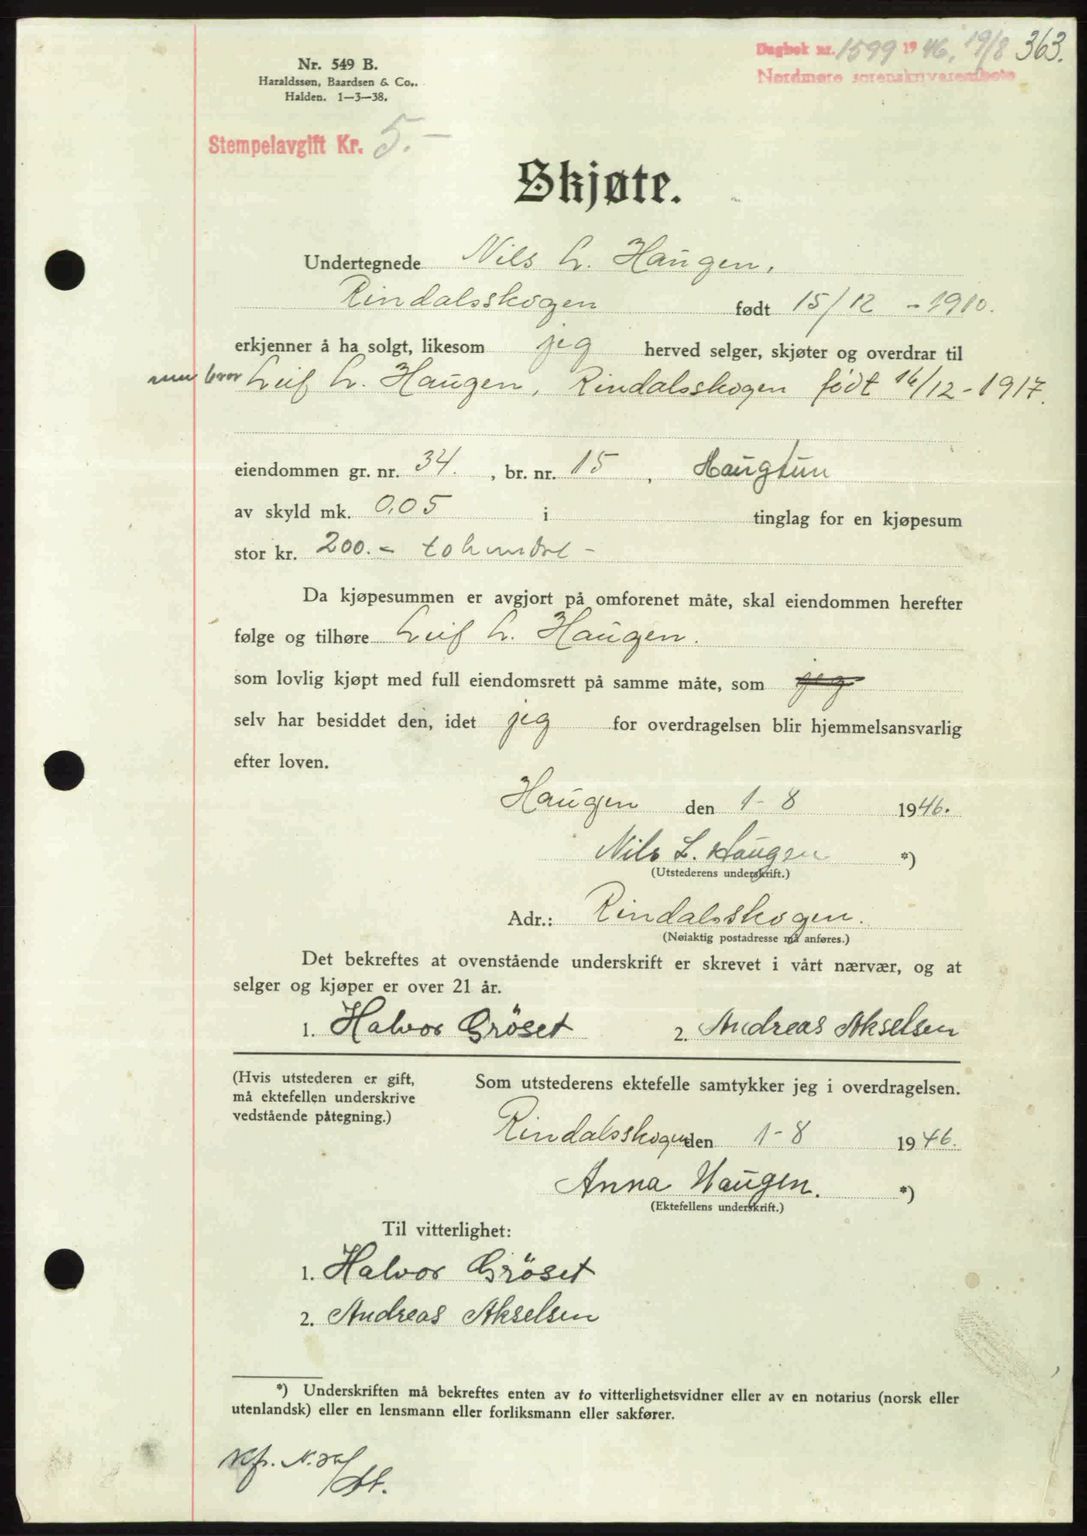 Dagbok nr. 1599 1946, 19/8 363.
Nordmøre sorenskriverembete
Nr. 549 B.
Haraldssøn, Baardsen & Co..
Halden. 1—3—38.
Stempelavgift Kr. 5.-
Skjøte.
Undertegnede Nils L. Haugen,
Rindalsskogen født 15/12 - 1910.
erkjenner å ha solgt, likesom jeg herved selger, skjøter og overdrar til
min bror Leif L. Haugen, Rindalsskogen født 16/12 - 1917.
eiendommen gr. nr. 34. , br. nr. 15 , Haugtun
av skyld mk. 0,05 i tinglag for en kjøpesum
stor kr. 200.- tohundre -
Da kjøpesummen er avgjort på omforenet måte, skal eiendommen herefter
følge og tilhøre Leif L. Haugen.
som lovlig kjøpt med full eiendomsrett på samme måte, som jeg
selv har besiddet den, idet jeg for overdragelsen blir hjemmelsansvarlig
efter loven.
Haugen den 1-8 1946.
Nils L. Haugen *)
(Utstederens underskrift.)
Adr.: Rindalsskogen.
(Nøiaktig postadresse må anføres.)
Det bekreftes at ovenstående underskrift er skrevet i vårt nærvær, og at
selger og kjøper er over 21 år.
1. Halvor Gröset 2. Andreas Akselsen
(Hvis utstederen er gift,
må ektefellen underskrive
vedstående påtegning.)
Som utstederens ektefelle samtykker jeg i overdragelsen.
Rindalsskogen den 1-8 1946.
Anna Haugen. *)
(Ektefellens underskrift.)
Til vitterlighet:
1. Halvor Gröset
2. Andreas Akselsen
*) Underskriften må bekreftes enten av to vitterlighetsvidner eller av en notarius (norsk eller
utenlandsk) eller en lensmann eller forliksmann eller sakfører.